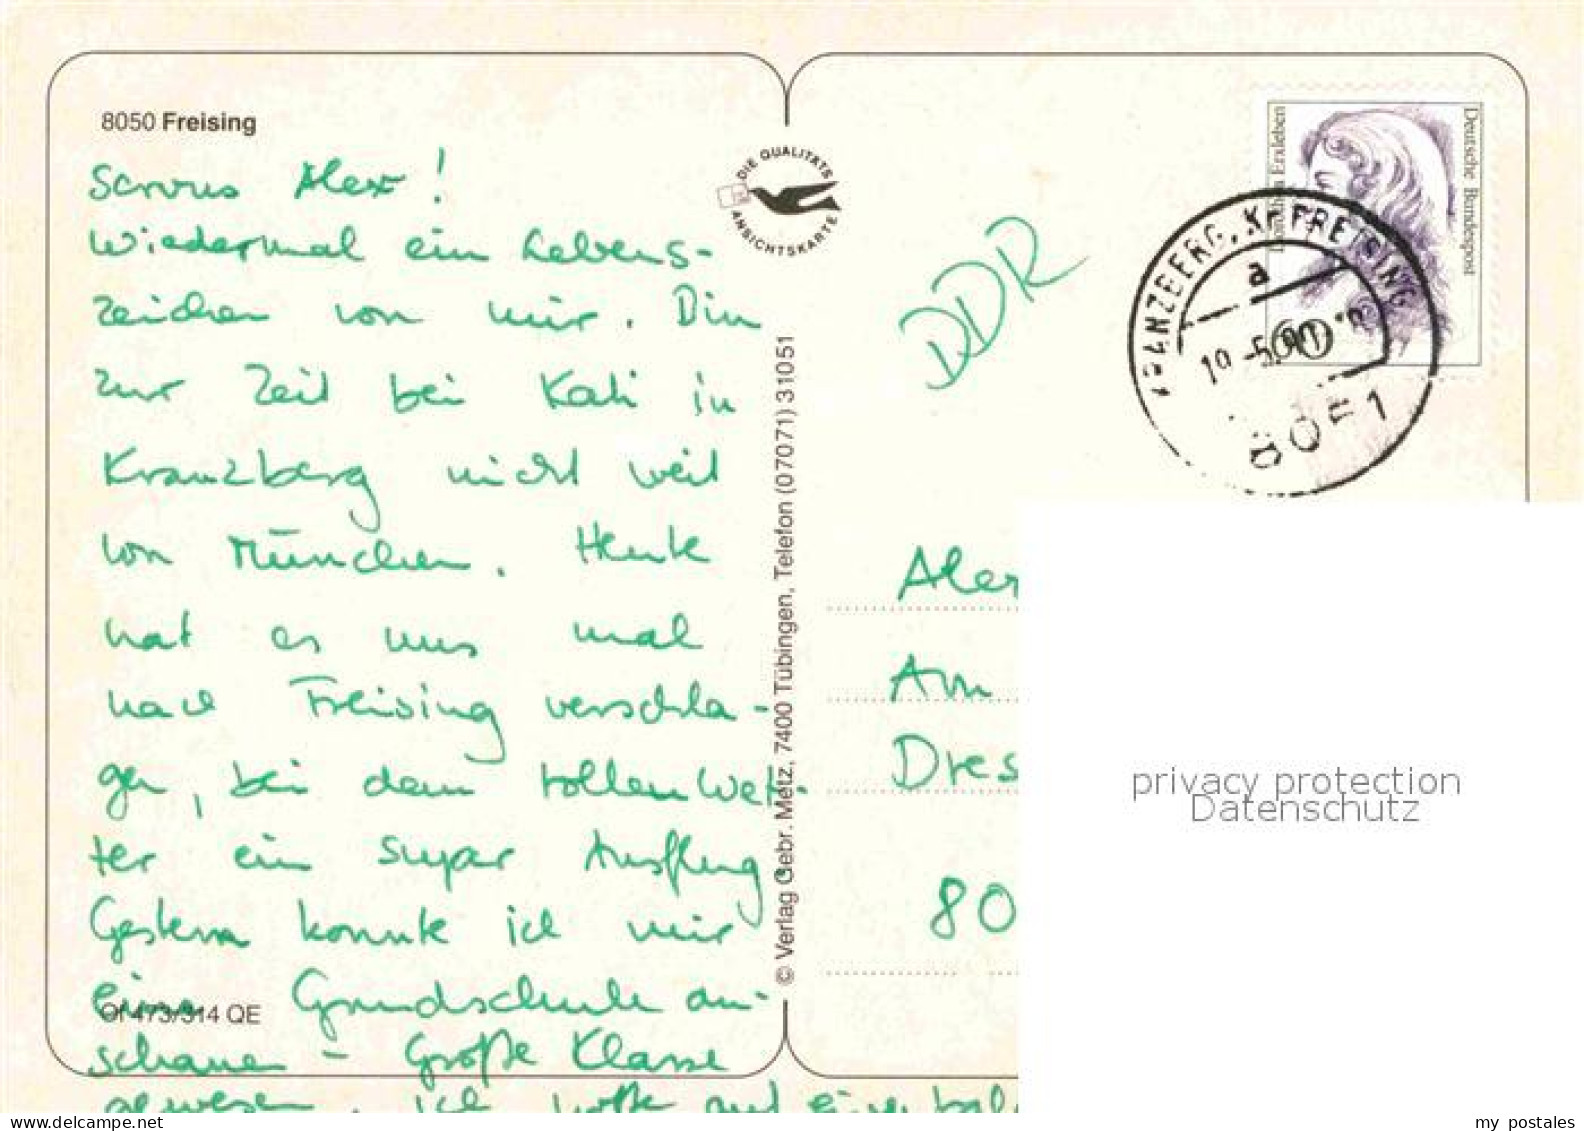 8050 Freising
Servus Alex!
Wiedermal ein Lebens-
zeichen von mir. Bin
zur Zeit bei Kati in
Kranzberg nicht weit
von München. Heute
hat es uns mal
nach Freising verschla-
gen, bei dem tollen Wet-
ter ein super Ausflug.
Gestern konnte ich mir
eine Grundschule an-
schauen - Große Klasse
gewesen. Ich hoffe auf
Of 473/314 QE
DIE QUALITÄTS
ANSICHTSKARTE
© Verlag Gebr. Metz, 7400 Tübingen, Telefon (07071) 31051
DDR
Deutsche Bundespost
Erxleben
60
KRANZBERG, Kr FREISING
a
8051
Alex
Am
Dres
80
privacy protection
Datenschutz
my postales